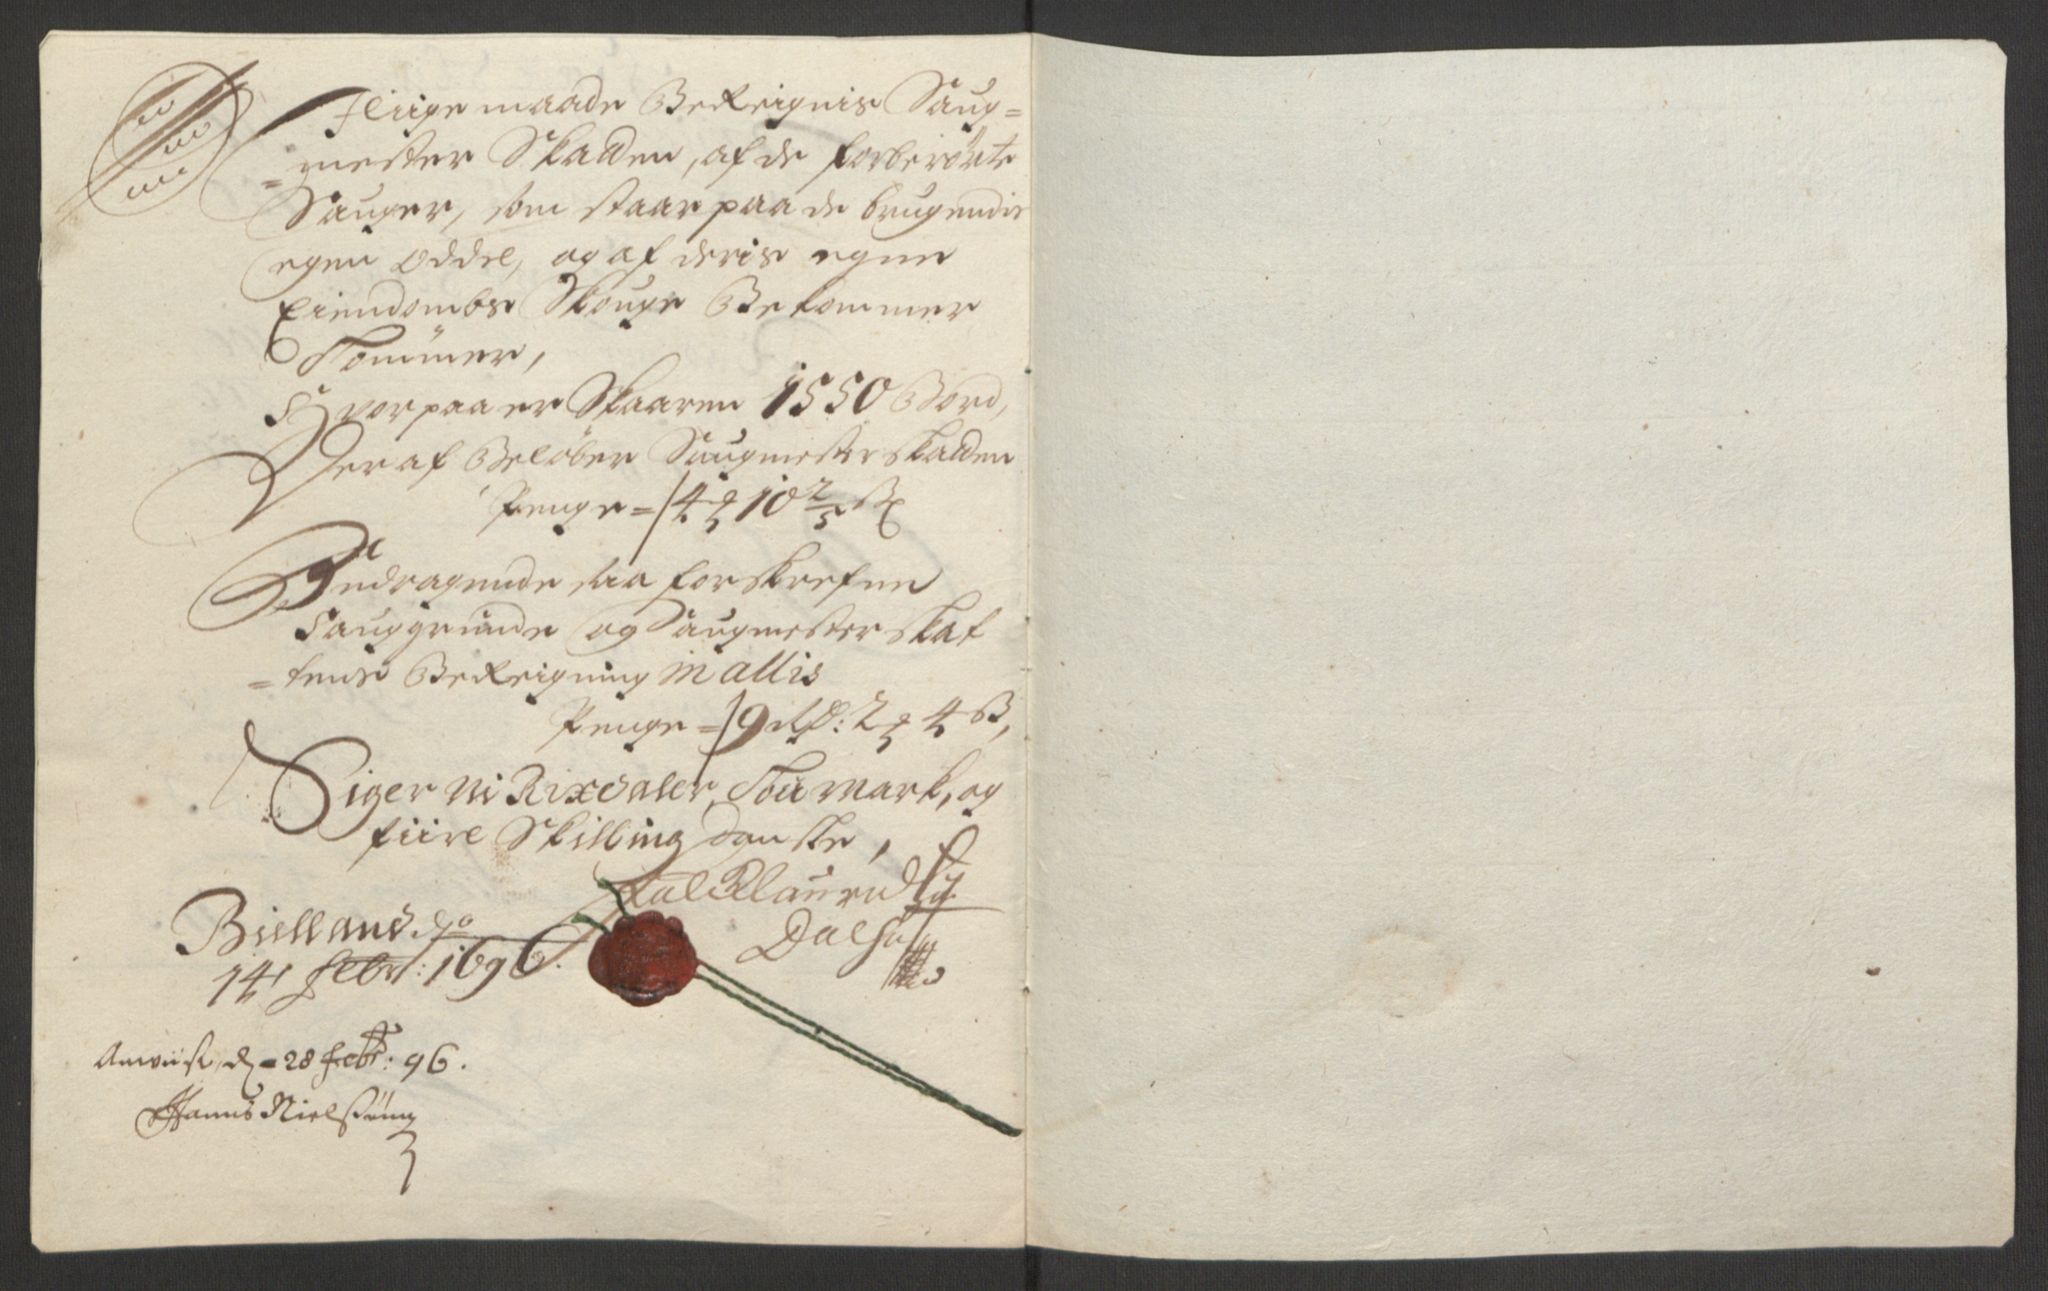 I liige maade Bereignis Saug=
=mester Skatten, af de forberörte
Sauger, som staar paa de brugendis
egen Oddel, og af deris egne
Eiendombs Skouge Bekommer
Tömmer,
Hvorpaa er Skaaren 1550 Bord,
Deraf Belöber Saugmester skatten
Penge = 4 10 2/5 ß
Andragende saa forskrefne
Sauggrunde og Saugmester skat
=tens Bereigning in allis
Penge = 9 Rd: 2 4 ß,
Siger Ni Rixdaler, Tou Mark, og
fiire Skilling danske,
Bielland dº
14 Febr: 1696.
Anviist, d - 28 Febr: 96.
Hanns Nielßönn